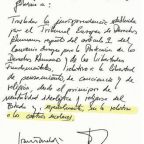 pública a:
Trasladar la jurisprudencia establecida
por el Tribunal Europeo de Derechos
Humanos respecto del artículo 2 del
Convenio Europeo para la Protección de los
Derechos Humanos y de las Libertades
Fundamentales, relativa a la libertad
de pensamiento, de conciencia y de
religión, desde el principio de
neutralidad ideológica y religiosa del
Estado y, especialmente, en lo relativo
a los centros escolares.